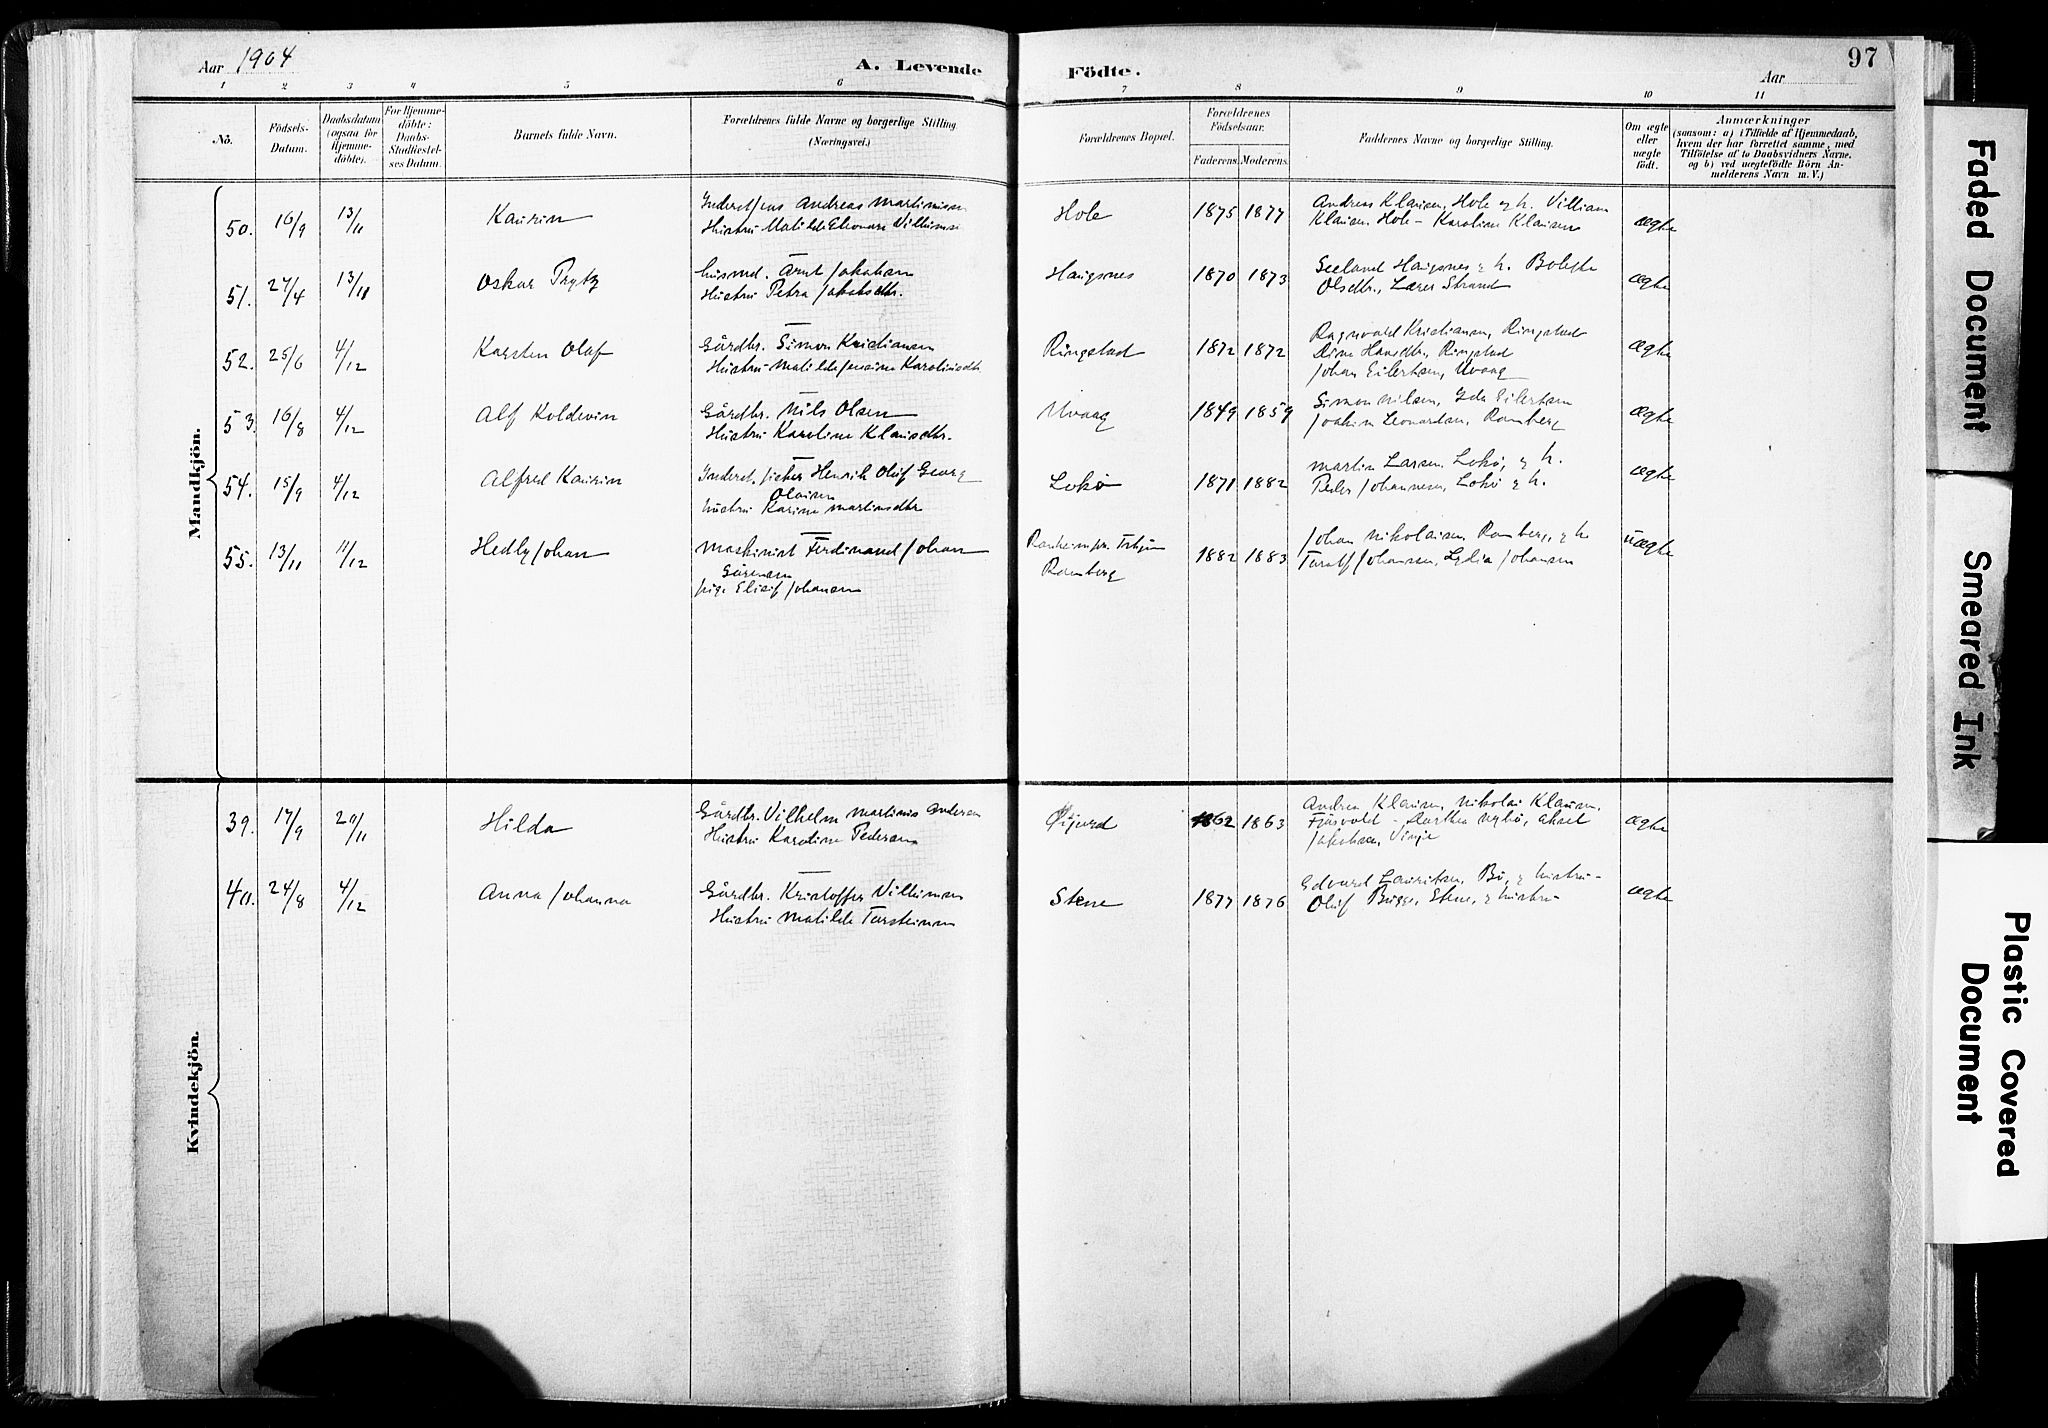 Aar 1904 A. Levende Födte. Aar 97
1 2 3 4 5 6 7 8 9 10 11
No. Födsels-Datum. Daabsdatum (ogsaa for Hjemme-döbte). For Hjemme-döbte: Daabs-Stadfæstel-ses Datum. Barnets fulde Navn. Forældrenes fulde Navne og borgerlige Stilling (Næringsvei.) Forældrenes Bopæl. Forældrenes Födselsaar. Faderens. Moderens. Faddernes Navne og borgerlige Stilling. Om ægte eller uægte födt. Anmærkninger (saasom: a) i Tilfælde af Hjemmedaab, hvem der har forrettet samme, med Tilföielse af to Daabsvidners Navne, og b) ved uægtefödte Börn An-melderens Navn m. V.)
Mandkjön.
50. 16/9 13/11 Kaurin Inderst, Andreas Martinsen Hole 1875 1877 Andreas Klausen, Hole & h. Villiam ægte
Hustru Matilde Eleonore Klausen, Hole - Karoline Klausen
51. 27/4 13/11 Oskar Prytz husmd. Arnt Jakobsen Haugsnes 1870 1873 Haugsnes & h. ægte
Hustru Petra Jakobsdtr. Olsdtr., Lærer Strand
52. 25/6 4/12 Karsten Olaf Gårdbr. Simon Kristiansen Ringstad 1872 1872 Ragnvald Kristiansen, Ringstad ægte
Hustru Matilde Karolinedtr. Hansdtr., Ringstad
Johan Eilertsen, Uvaag
53. 16/8 4/12 Alf Koldevin Gårdbr. Nils Olsen Uvaag 1849 1859 Simon Nilsen, Ida Eilertsen ægte
Hustru Karoline Klausdtr. Joakim Leonardsen, Ramberg
54. 15/9 4/12 Alfred Kaurin Inderst, fisker Henrik Oluf Georg Lokø 1871 1882 Martin Larsen, Lokø, & h. ægte
Olaisen Peder Johannesen, Lokø & h.
hustru Karine Martinsdtr
55. 13/11 11/12 Hedly Johan Maskinist Ferdinand Johan Ranheim pr. Trhjem 1882 1883 Johan Nikolaisen, Ramberg, & h uægte
Sørensen Ramberg Toralf Johansen, Lydia Johansen
pige Elisif Johansen
Kvindekjön.
39. 17/9 20/11 Hilda Gårdbr. Vilhelm Martinus Andersen 1862 1863 Andrea Klausen, Nikolai Klausen, ægte
Hustru Karoline Pedersen Fjøsvold - Dorthea Nybø, Aksel
Jakobsen, Vinje
40. 24/8 4/12 Anna Johanna Gårdbr. Kristoffer Villumsen Stene 1877 1876 Edvard Lauritsen, Bø, & hustru - ægte
Hustru Matilde Torsteinsen Oluf Bugge, Stene, & hustru -
Faded Document
Smeared Ink
Plastic Covered Document